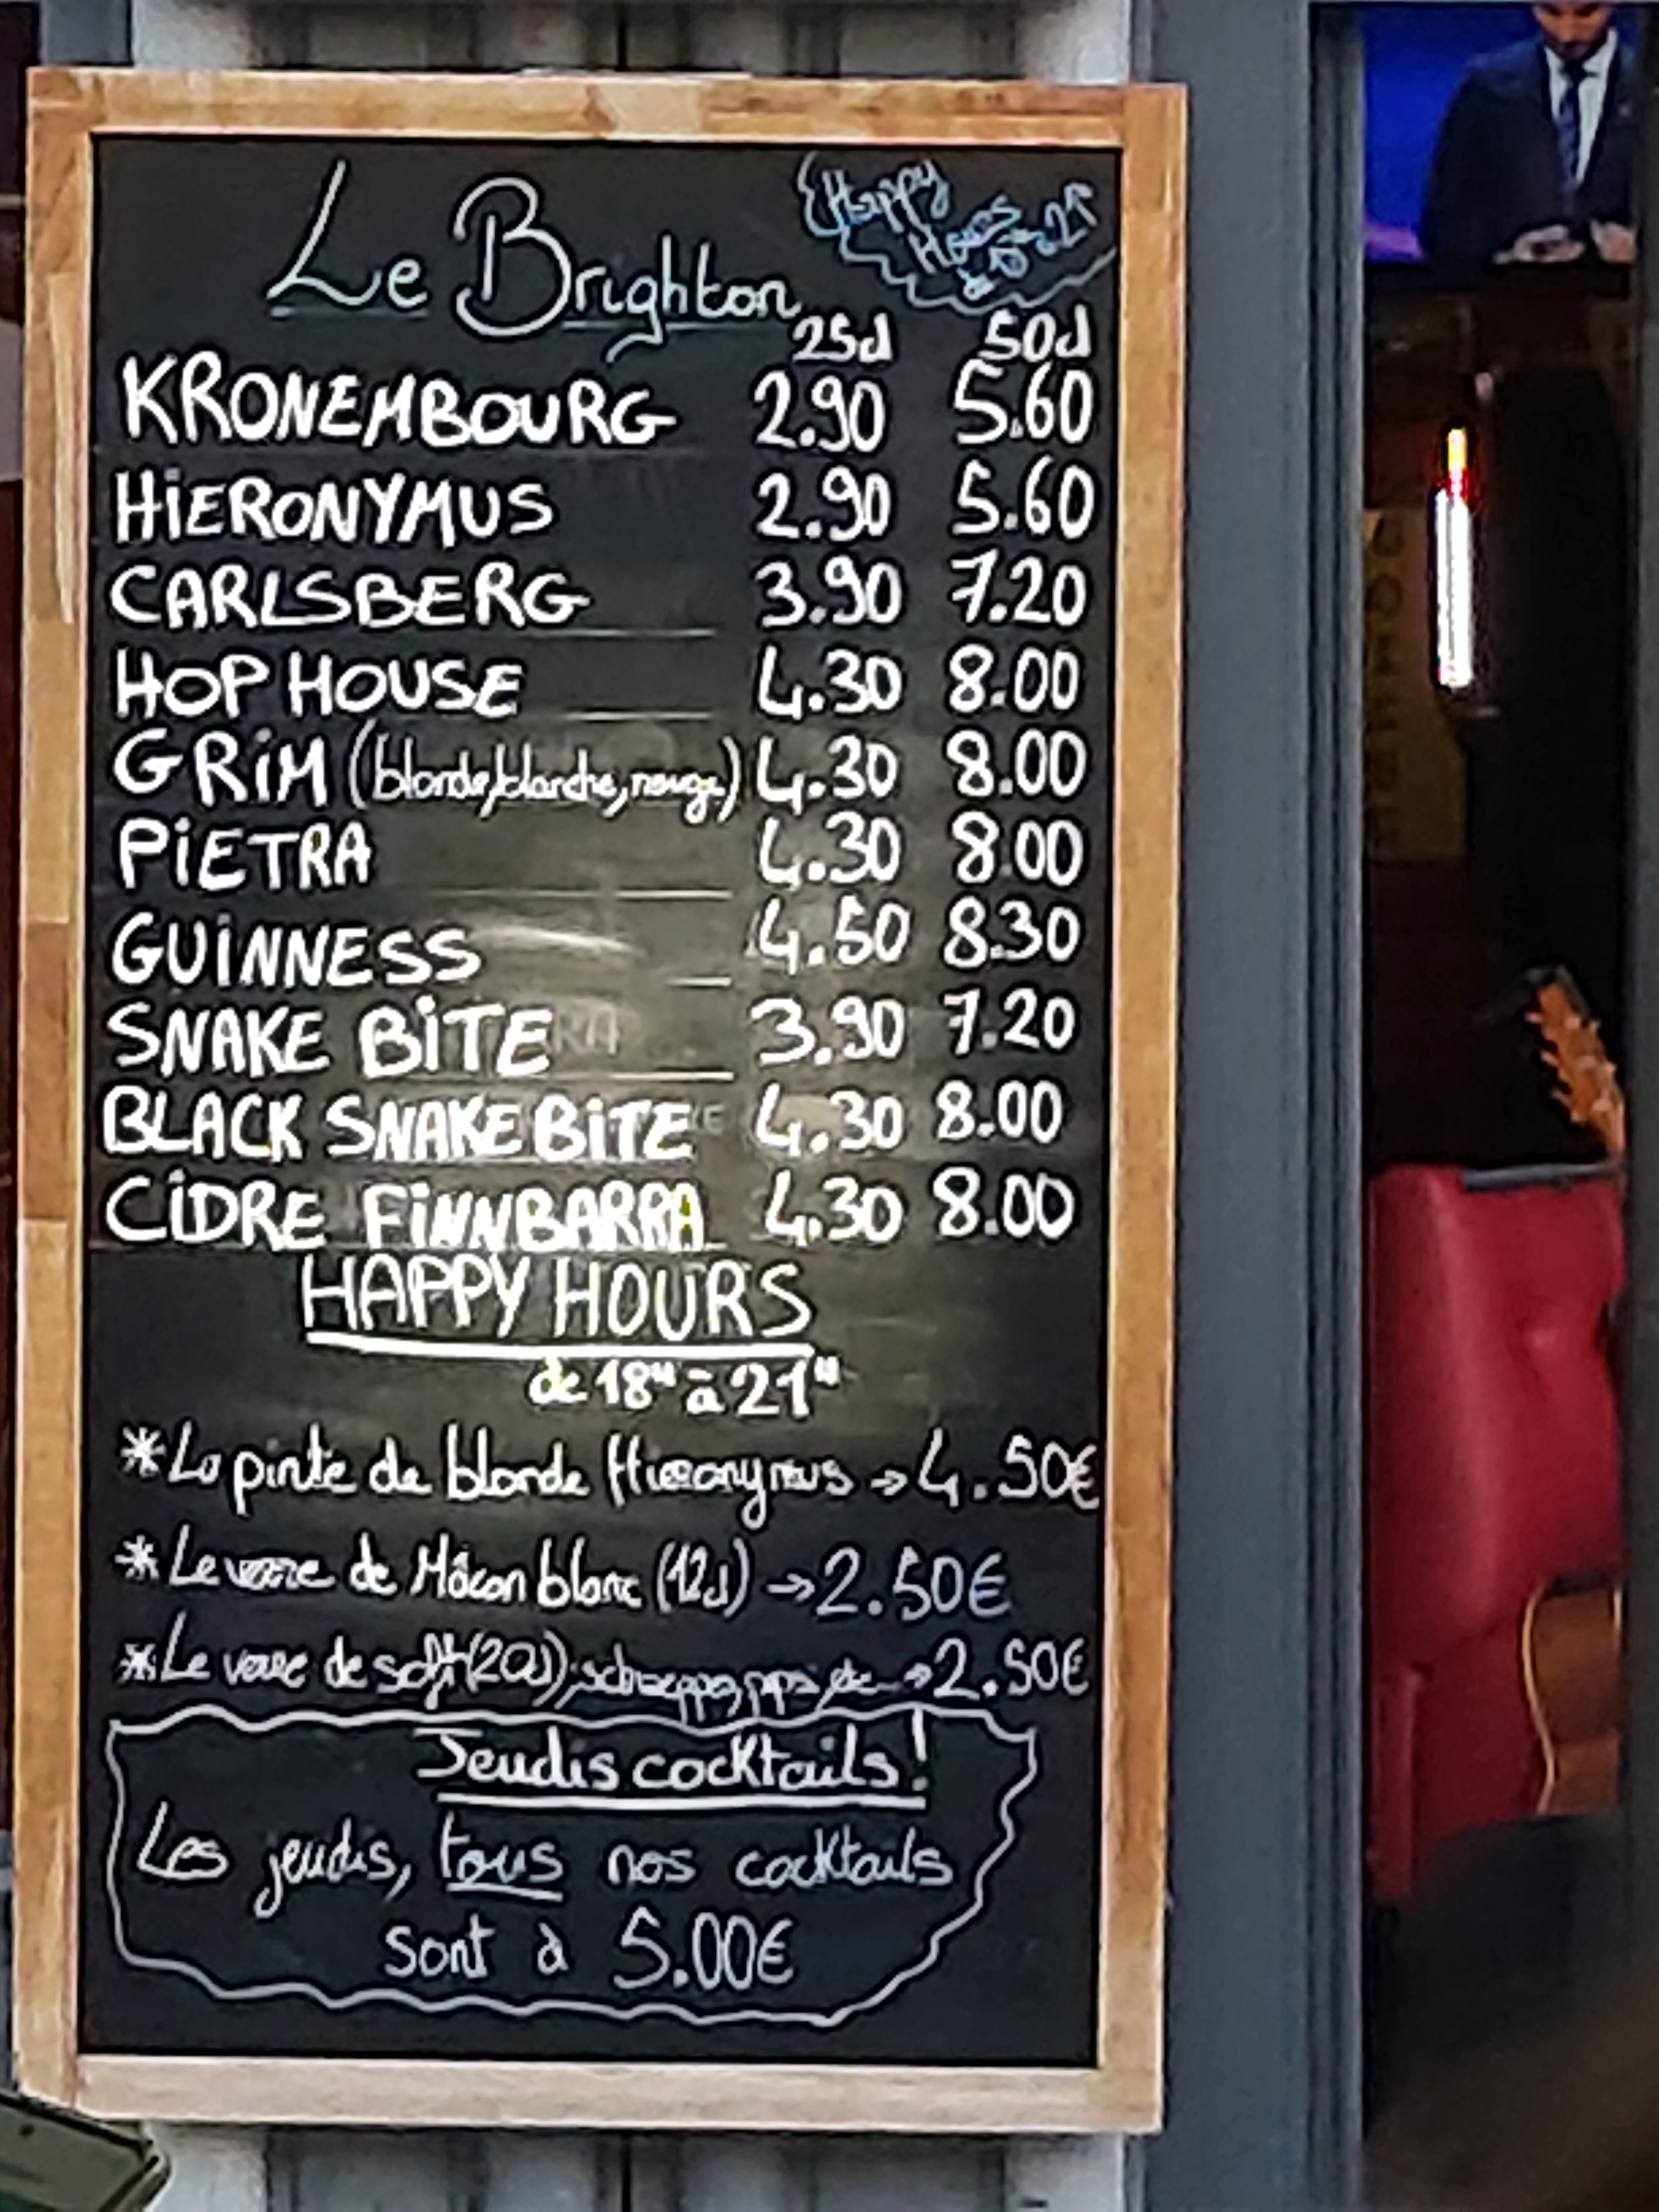 Le Brighton
Happy
Hours
25cl 50cl
KRONEMBOURG 2.90 5.60
HiERONYMUS 2.90 5.60
CARLSBERG 3.90 7.20
HOP HOUSE 4.30 8.00
GRiM (blonde, blanche, rouge) 4.30 8.00
PiETRA 4.30 8.00
GUiNNESS 4.50 8.30
SNAKE BiTE 3.90 7.20
BLACK SNAKE BiTE 4.30 8.00
CiDRE FiNNBARRA 4.30 8.00
HAPPY HOURS
de 18H à 21H
*La pinte de blonde Hieronymus → 4.50€
*Le verre de Mâcon blanc (12cl) → 2.50€
*Le verre de soft (20cl), schweppes, pepsi, etc → 2.50€
Jeudis cocktails!
Les jeudis, tous nos cocktails
sont à 5.00€